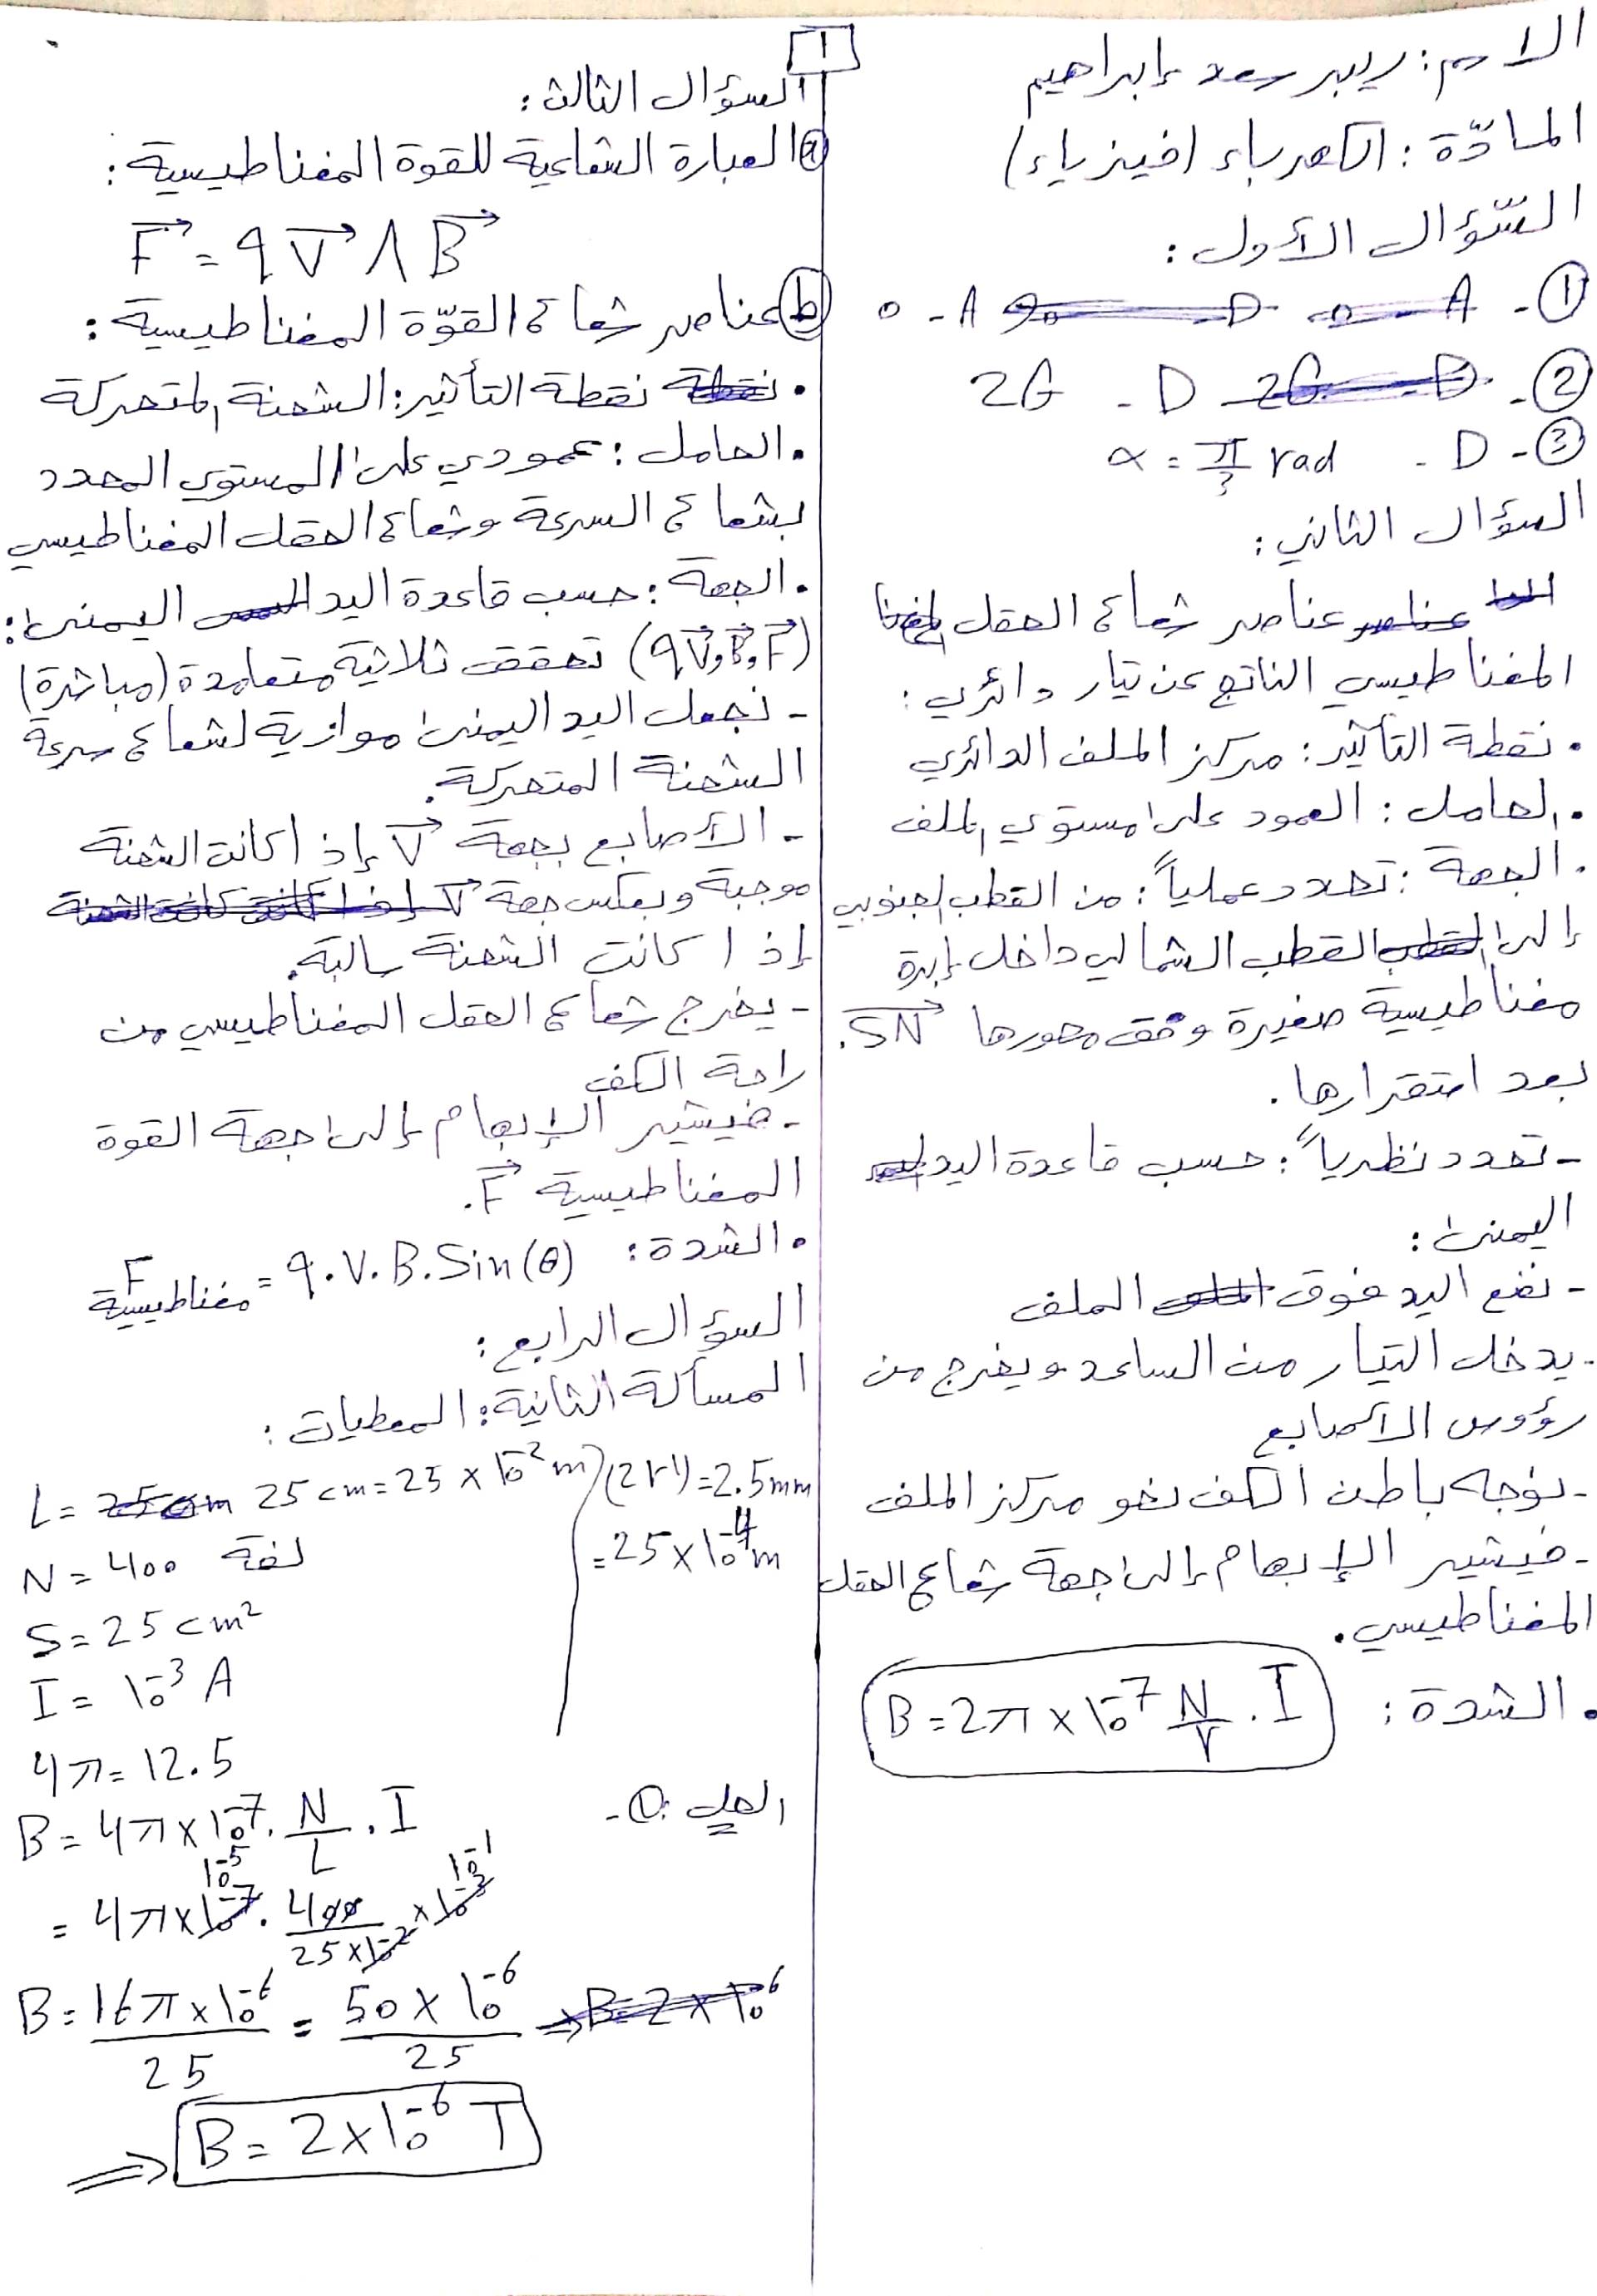 1
الاسم: ريبر سعد إبراهيم
المادّة: الكهرباء (فيزياء)
السّؤال الأول:
① - A - 0
② - D - 2G
③ - D - α = π/2 rad
السؤال الثاني:
عناصر شعاع الحقل
المغناطيسي الناتج عن تيار دائري:
• نقطة التأثير: مركز الملف الدائري
• الحامل: العمود على مستوي الملف
• الجهة: تحدد عملياً: من القطب الجنوبي
إلى القطب الشمالي داخل إبرة
مغناطيسية صغيرة وفق محورها SN→.
بعد استقرارها.
- تحدد نظرياً: حسب قاعدة اليد
اليمنى:
- نضع اليد فوق الملف
- يدخل التيار من الساعد ويخرج من
رؤوس الأصابع
- نوجه باطن الكف نحو مركز الملف
- فيشير الإبهام إلى جهة شعاع الحقل
المغناطيسي.
• الشدة: B = 2π × 10⁻⁷ N/r . I
السؤال الثالث:
ⓐ العبارة الشعاعية للقوة المغناطيسية:
F→ = qV→ Λ B→
ⓑ عناصر شعاع القوّة المغناطيسية:
• نقطة التأثير: الشحنة المتحركة
• الحامل: عمودي على المستوي المحدد
بشعاع السرعة وشعاع الحقل المغناطيسي
• الجهة: حسب قاعدة اليد اليمنى:
(qV→, B→, F→) تحقق ثلاثية متعامدة (مباشرة)
- نجعل اليد اليمنى موازية لشعاع سرعة
الشحنة المتحركة.
- الأصابع بجهة V→ إذا كانت الشحنة
موجبة وبعكس جهة V→
إذا كانت الشحنة سالبة.
- يخرج شعاع الحقل المغناطيسي من
راحة الكف
- فيشير الإبهام إلى جهة القوة
المغناطيسية F→.
• الشدة: F مغناطيسية = q.V.B.Sin(θ)
السؤال الرابع:
المسألة الثانية: المعطيات:
L = 25 cm = 25 × 10⁻² m (2r') = 2.5mm
= 25 × 10⁻⁴ m
N = 400 لفة
S = 25 cm²
I = 10⁻³ A
4π = 12.5
الحل: ① -
B = 4π × 10⁻⁷ . N/L . I
= 4π × 10⁻⁷ . 400/(25 × 10⁻²) × 10⁻³
10⁻⁵ 10⁻¹
B = 16π × 10⁻⁶/25 = 50 × 10⁻⁶/25
⇒ B = 2 × 10⁻⁶ T